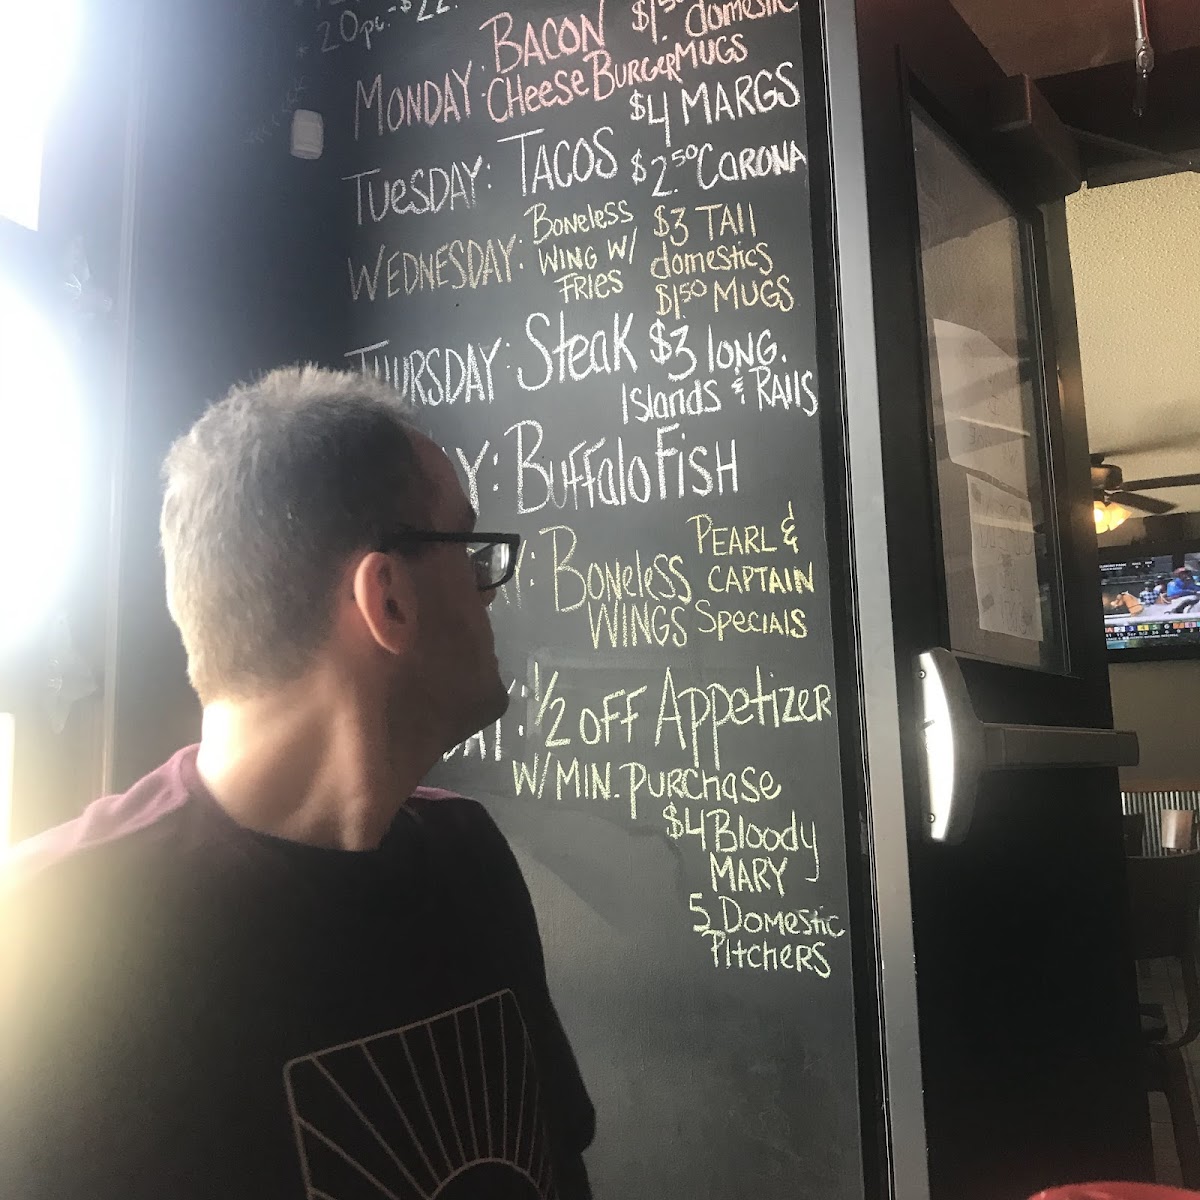 20pc.-$22.
MONDAY: BACON CHeese BURGER $1.50 domestic MUGS
TUESDAY: TACOS $4 MARGS
$2.50 CARONA
WEDNESDAY: Boneless WING W/ FRIES $3 TAll domestics
$1.50 MUGS
THURSDAY: Steak $3 lONG. Islands & RAIlS
Y: BuffaloFisH
Y: BoNeleSS WINGS PEARL & CAPTAIN SpeciAlS
AY: 1/2 OFF Appetizer
W/MIN. PURCHase
$4 Bloody
MARY
5 Domestic
PitcheRS